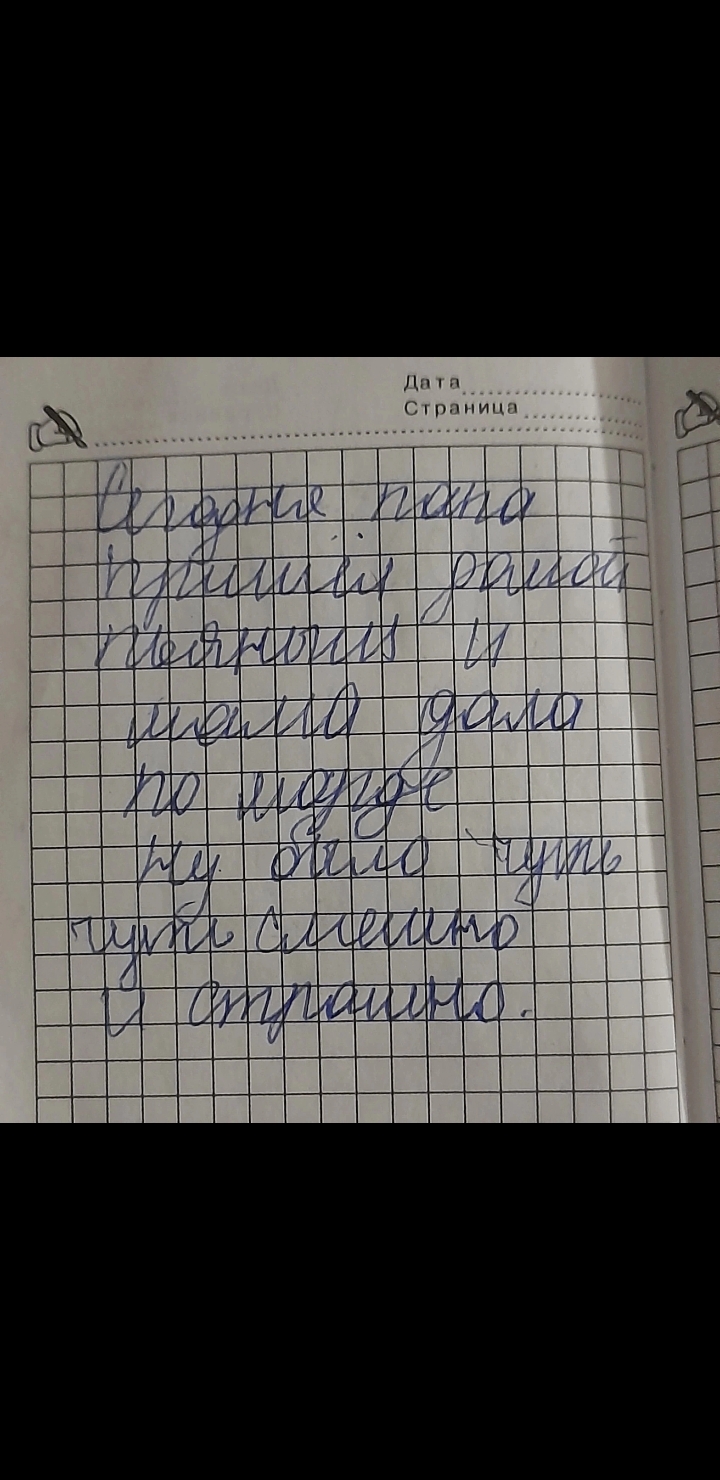 Дата
Страница
Сегодня папа
пришёл домой
пьяный и
мама дала
по морде
Ну было чуть
чуть смешно
и страшно.